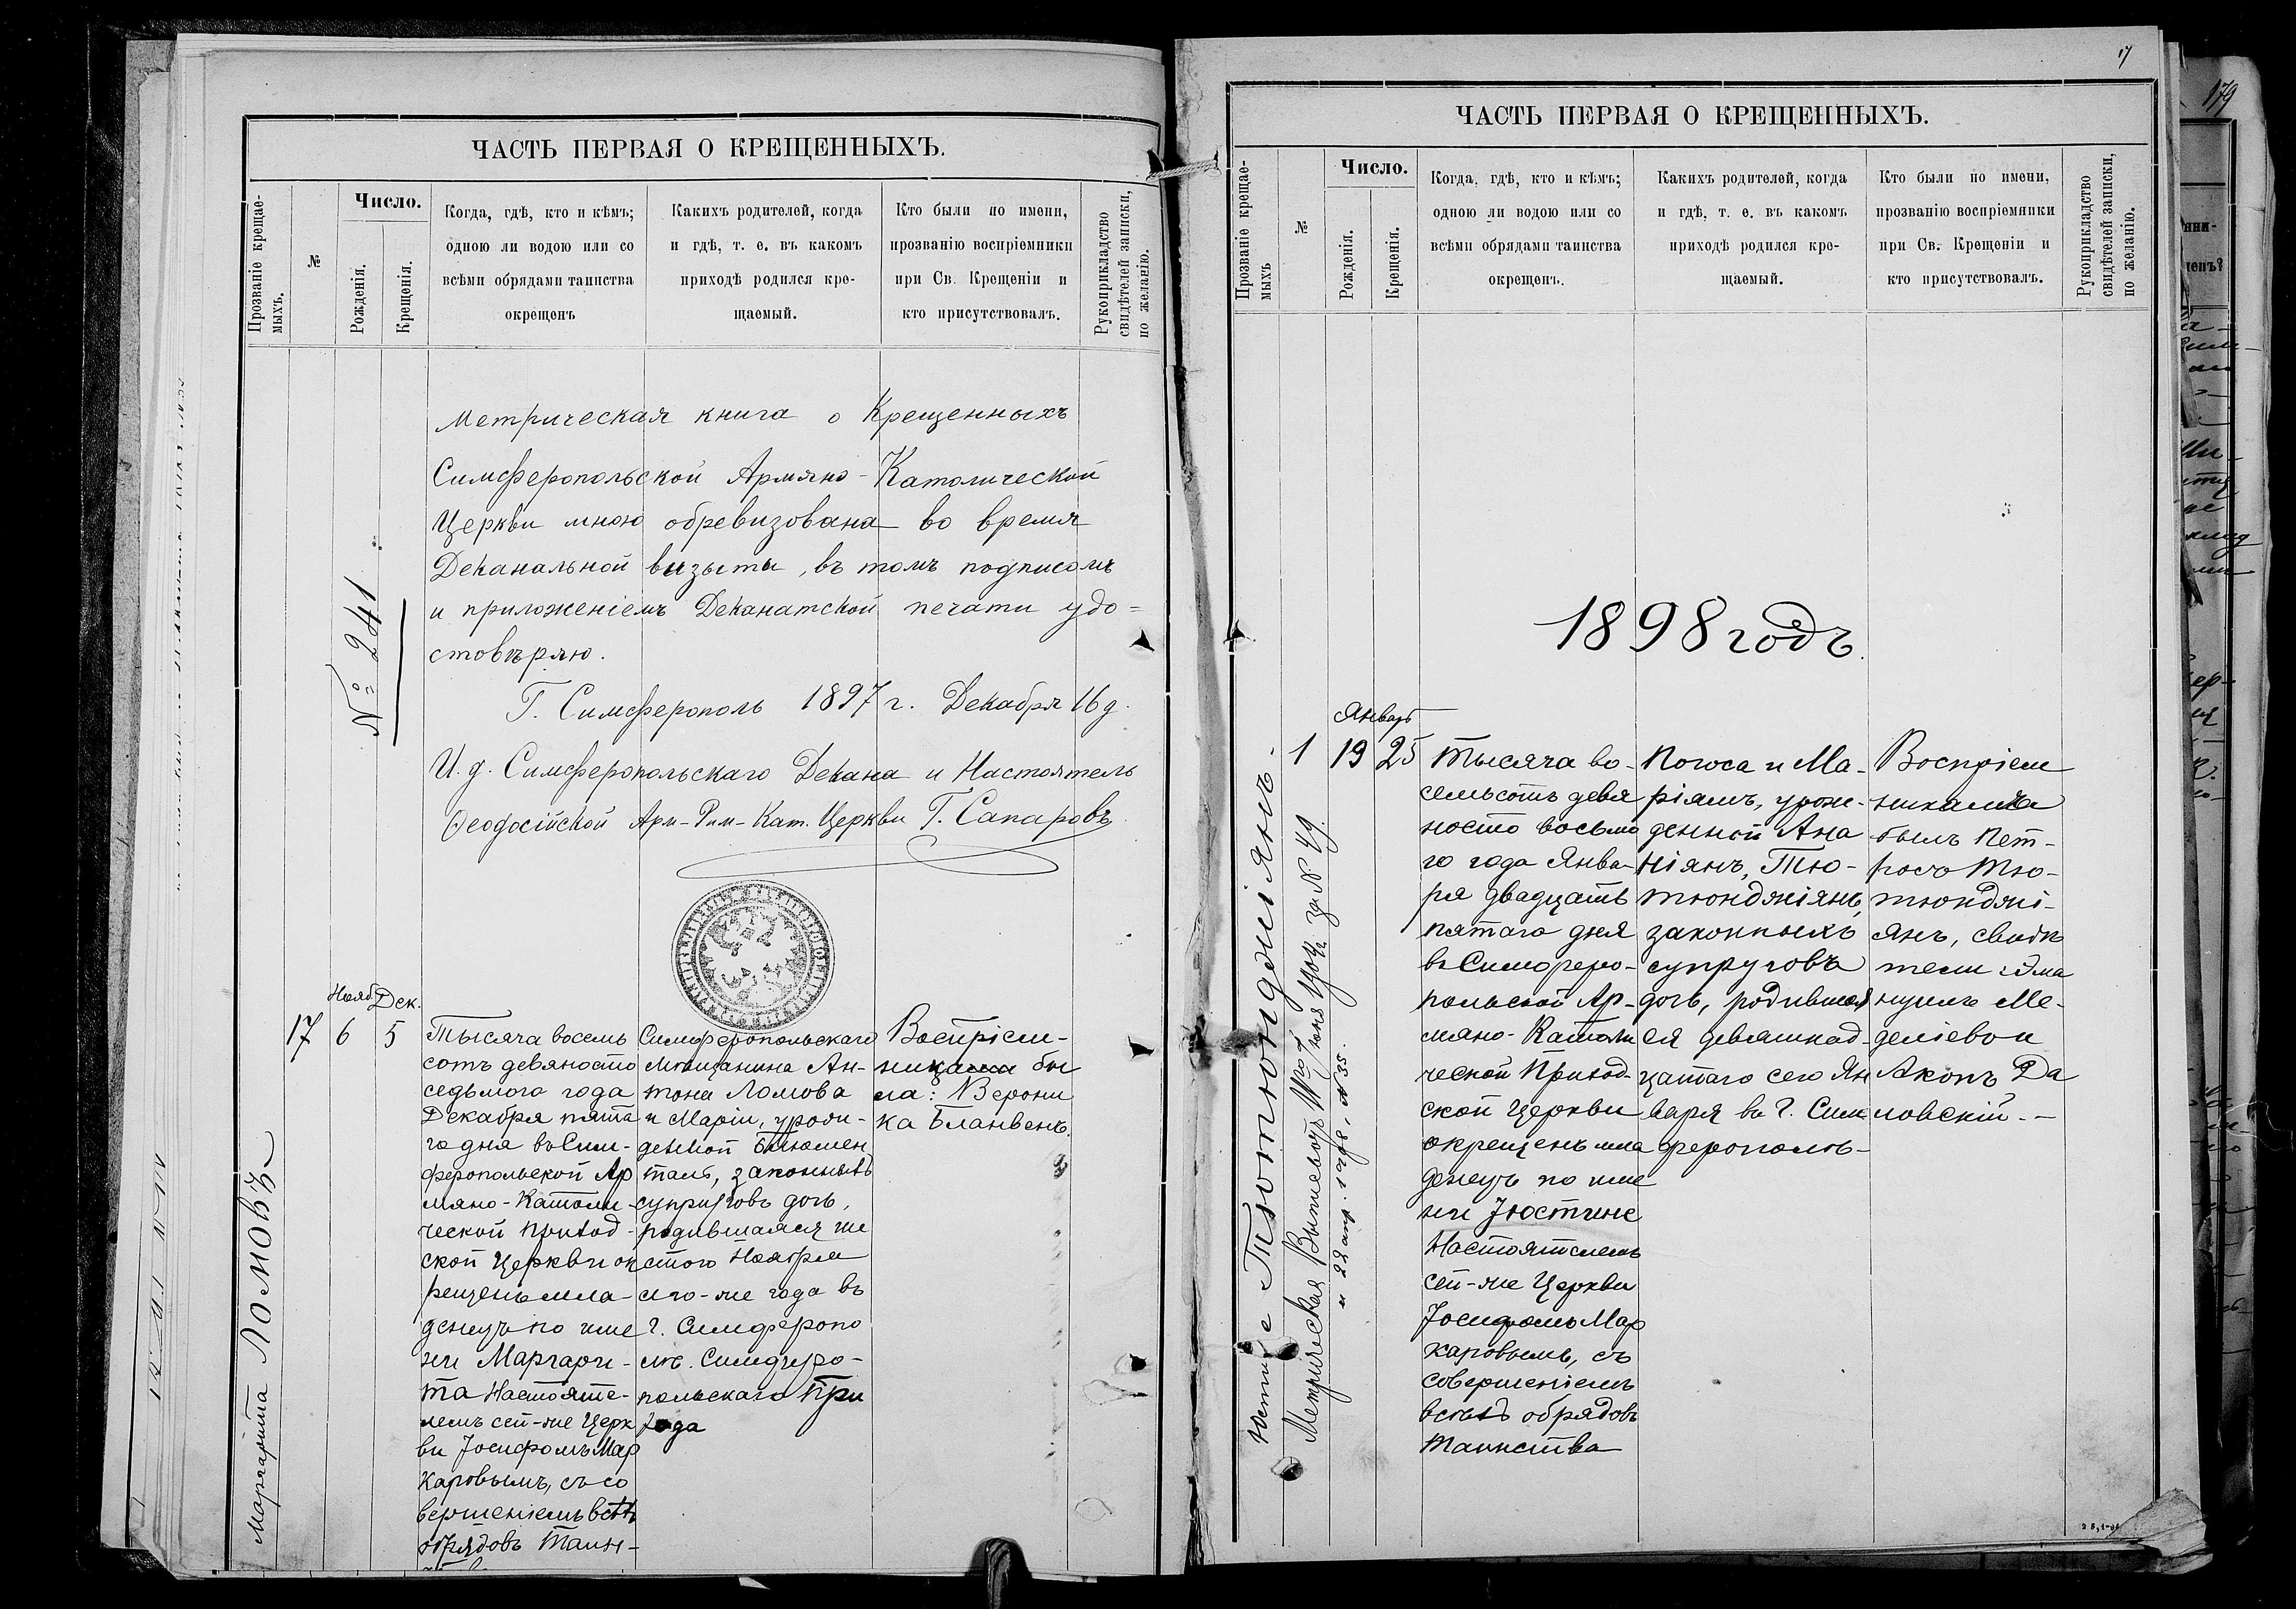 ЧАСТЬ ПЕРВАЯ О КРЕЩЕННЫХЪ.
Прозваніе крещае-
мыхъ.
№
Число.
Рожденія.
Крещенія.
Когда, гдѣ, кто и кѣмъ;
одною ли водою или со
всѣми обрядами таинства
окрещенъ
Какихъ родителей, когда
и гдѣ, т. е. въ какомъ
приходѣ родился кре-
щаемый.
Кто были по имени,
прозванію воспріемники
при Св. Крещеніи и
кто присутствовалъ.
Рукоприкладство
свидѣтелей записки,
по желанію.
Метрическая книга о Крещенныхъ
Симсферопольской Армяно-Католической
Церкви мною обревизована во время
Деканальной визыты, въ томъ подписомъ
и приложеніемъ Деканатской печати удо=
стовѣряю.
№ 241
Г. Симсферополь 1897 г. Декабря 16 д.
И. д. Симсферопольскаго Декана и Настоятель
Ѳеодосійской Арм-Рим-Кат. Церкви Г. Сапаровъ.
Нояб. Дек.
17 6 5
Маргарита Ломовъ
Тысяча восемь
сотъ девяносто
седьмого года
Декабря пята
го дня въ Сим-
феропольской Ар
мяно-Католи-
ческой Приход-
ской Церкви ок
рещенъ мла-
денецъ по име
ни Маргари-
та Настояте-
лемъ сей-же Церк
ви Іосифомъ Мар
каровымъ, съ со
вершеніемъ всѣхъ
обрядовъ Таин-
Симферопольскаго
мѣщанина Ан-
тона Ломова
и Маріи, урож-
денной
законныхъ
супруговъ дочь,
родившаяся ше
стого Ноября
сего-же года въ
г. Симферопо
лѣ. Симферо-
польскаго При
хода
Воспріем-
ника бы
ла: Верони
ка Бланвенъ.
17
ЧАСТЬ ПЕРВАЯ О КРЕЩЕННЫХЪ.
Прозваніе крещае-
мыхъ
№
Число.
Рожденія.
Крещенія.
Когда, гдѣ, кто и кѣмъ;
одною ли водою или со
всѣми обрядами таинства
окрещенъ.
Какихъ родителей, когда
и гдѣ, т. е. въ какомъ
приходѣ родился кре-
щаемый.
Кто были по имени,
прозванію воспріемники
при Св. Крещеніи и
кто присутствовалъ.
Рукоприкладство
свидѣтелей записки,
по желанію.
1898 годъ.
Январь
1 19 25
Тютюнджіянъ.
Метрическая за № 49.
Тысяча во-
семьсотъ девя
носто восьмо
го года Янва-
ря двадцать
пятаго дня
въ Симферо-
польской Ар-
мяно-Католи
ческой Приход-
ской Церкви
окрещенъ мла
денецъ по име
ни Іюстине
Настоятелемъ
сей-же Церкви
Іосифомъ Мар
каровымъ, съ
совершеніемъ
всѣхъ обрядовъ
Таинства
Погоса и Ма-
ріямъ, урож-
денной Ана
ніянъ, Тю-
тюнджіянъ,
законныхъ
супруговъ
дочь, родившая
ся девятнад-
цатаго сего Ян
варя въ Г. Сим
ферополѣ-
Воспріем
никами
былъ Пет-
росъ Тю-
тюнджі-
янъ, свидѣ
тели: Эма
нуилъ Ме-
деліевъ и
Акопъ Да
ловскій.-
179